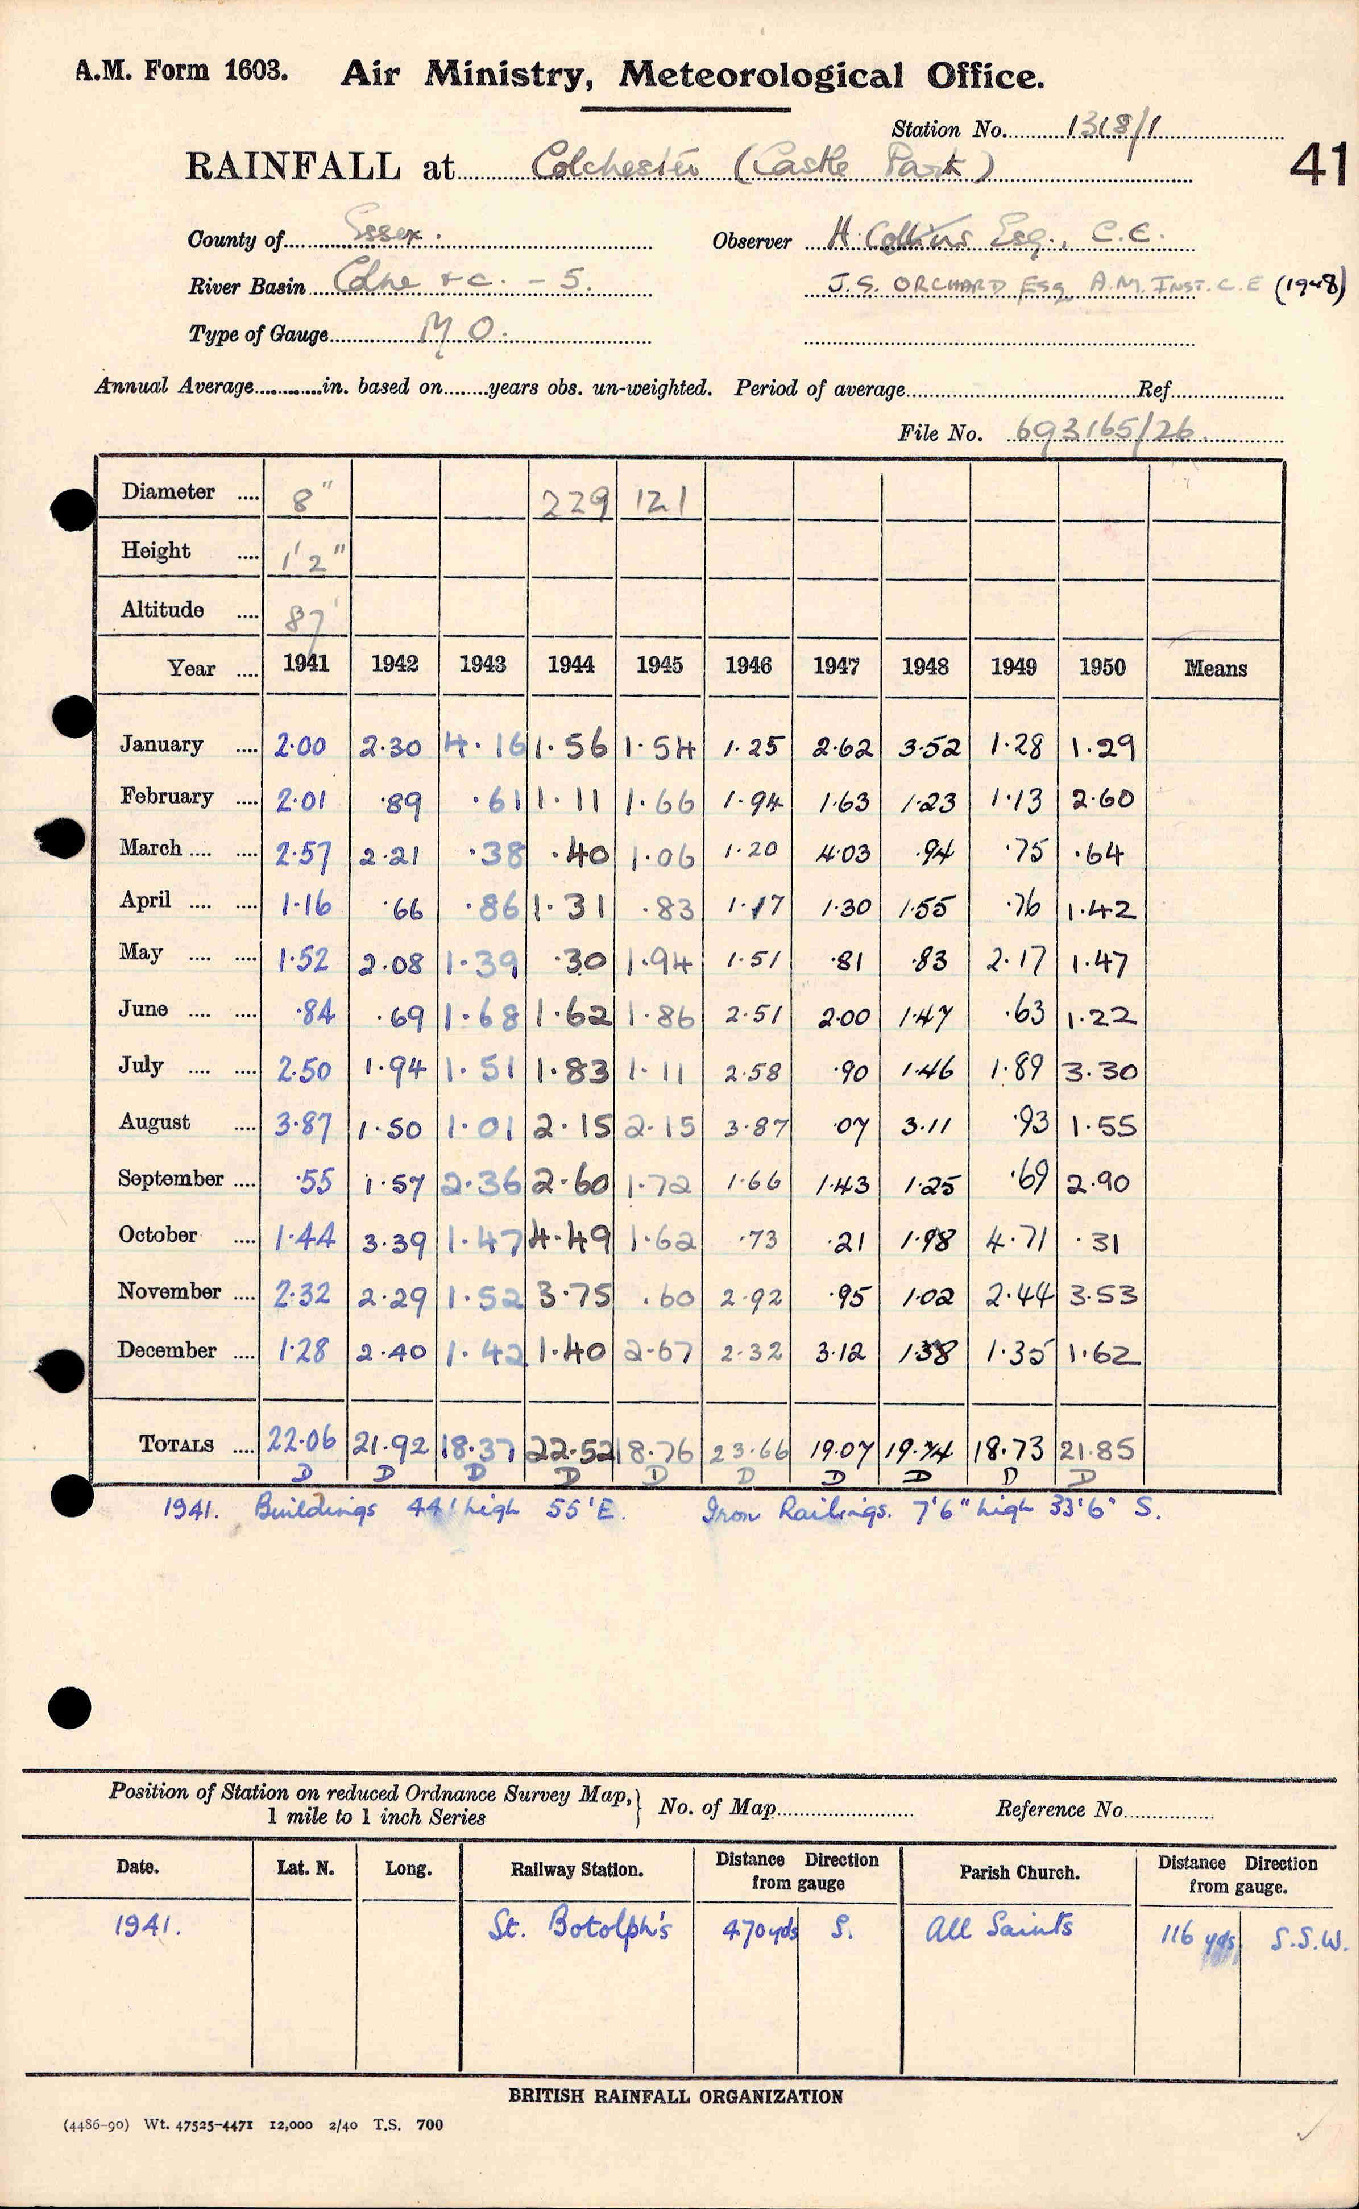 A.M. Form 1603. Air Ministry, Meteorological Office.
Station No. 1318/1
RAINFALL at Colchester (Castle Park)
41
County of Essex. Observer H. Collins Esq., C.E.
River Basin Colne &c. - 5. J.S. ORCHARD Esq A.M. INST. C.E (1948)
Type of Gauge M O.
Annual Average in. based on years obs. un-weighted. Period of average Ref.
File No. 693165/26
Diameter .... 8" 229 121
Height .... 1'2"
Altitude .... 87'
Year .... 1941 1942 1943 1944 1945 1946 1947 1948 1949 1950 Means
January .... 2.00 2.30 4.16 1.56 1.54 1.25 2.62 3.52 1.28 1.29
February .... 2.01 .89 .61 1.11 1.66 1.94 1.63 1.23 1.13 2.60
March .... .... 2.57 2.21 .38 .40 1.06 1.20 4.03 .94 .75 .64
April .... .... 1.16 .66 .86 1.31 .83 1.17 1.30 1.55 .76 1.42
May .... .... 1.52 2.08 1.39 .30 1.94 1.51 .81 .83 2.17 1.47
June .... .... .84 .69 1.68 1.62 1.86 2.51 2.00 1.47 .63 1.22
July .... .... 2.50 1.94 1.51 1.83 1.11 2.58 .90 1.46 1.89 3.30
August .... 3.87 1.50 1.01 2.15 2.15 3.87 .07 3.11 .93 1.55
September .... .55 1.57 2.36 2.60 1.72 1.66 1.43 1.25 .69 2.90
October .... 1.44 3.39 1.47 4.49 1.62 .73 .21 1.98 4.71 .31
November .... 2.32 2.29 1.52 3.75 .60 2.92 .95 1.02 2.44 3.53
December .... 1.28 2.40 1.42 1.40 2.67 2.32 3.12 1.38 1.35 1.62
TOTALS .... 22.06 21.92 18.37 22.52 18.76 23.66 19.07 19.74 18.73 21.85
D D D D D D D D D D
1941. Buildings 44' high 55' E. Iron Railings. 7'6" high 33'6" S.
Position of Station on reduced Ordnance Survey Map,
1 mile to 1 inch Series } No. of Map Reference No.
Date. Lat. N. Long. Railway Station. Distance Direction from gauge Parish Church. Distance Direction from gauge.
1941. St. Botolph's 470 yds S. All Saints 116 yds S.S.W.
BRITISH RAINFALL ORGANIZATION
(4486-90) Wt. 47525-4471 12,000 2/40 T.S. 700